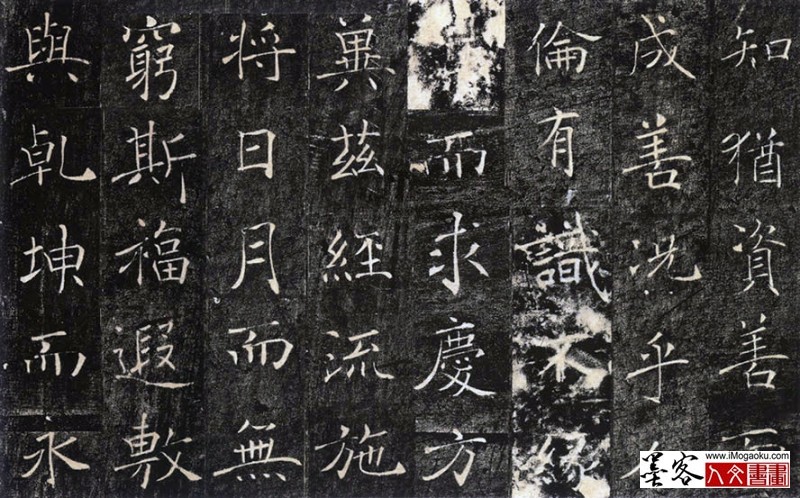 知猶資善而
成善況乎人
倫有識不緣
慶而求慶方
冀茲經流施
将日月而無
窮斯福遐敷
與乹坤而永
墨客
www.iMogaoku.com
人文書畫